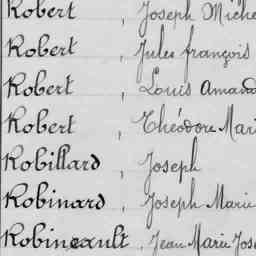 Robert, Joseph Miche
Robert, Jules françois
Robert, Louis Amand
Robert, Théodore Mari
Robillard, Joseph
Robinard, Joseph Marie
Robineault, Jean Marie Jos